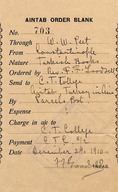 AINTAB ORDER BLANK
No. 703
Through W. W. Peet
From Constantinople
Nature Turkish Books
Ordered by Rev. F. F. Goodsell
Send to C. T. College
Aintab, Turkey in Asia
By Parcels Post
Expense
Charge in a/c to
C. T. College
Payment
Date December 29, 1910